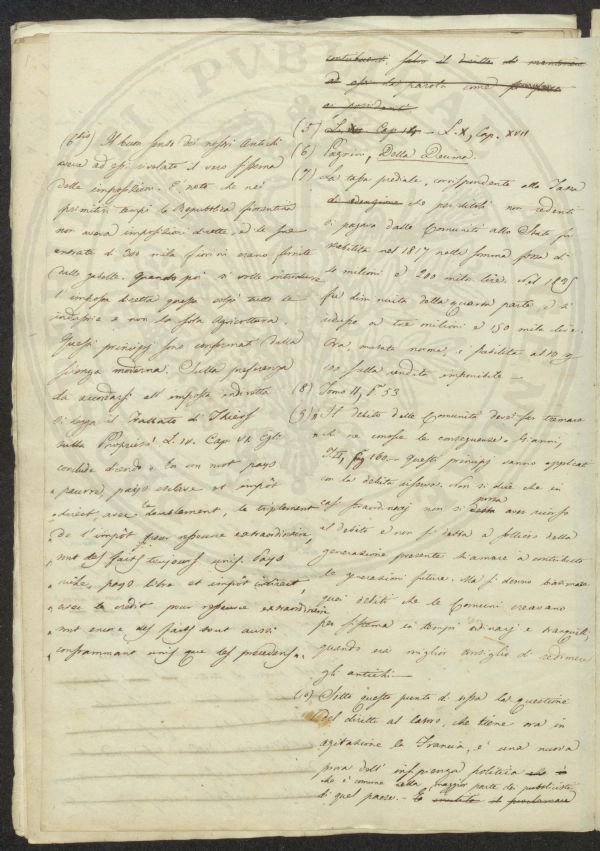 (6 bis) Il buon senso dei nostri Antichi
aveva ad essi rivelato il vero sistema
delle imposizioni. È noto che nei
primitivi tempi la Repubblica fiorentina
non aveva imposizioni dirette, ed le sue
entrate di 300 mila fiorini erano fornite
dalle gabelle. Quando poi si volle introdurre
l'imposta diretta questa colpì tutte le
industrie e non la sola Agricoltura.
Questi principj sono confermati dalla
scienza moderna. Sulla preferenza
da accordarsi all'imposta indiretta
si legga il Trattato di Thiers
sulla Proprietà L. IV. Cap. Egli
conclude dicendo "En un mot pays
"pauvre, pays esclave et impôt
"direct avec le doublement, le triplement
"de l'impôt pour ressource extraordinaire,
"sont des faits toujours unis. Pays
"riche, pays libre et impôt indirect,
"avec le crédit pour ressource extraordinaire
"sont encore des faits tout aussi
"constamment unis que les précédens".
contribuenti, salvo il diritto di
ad essi la parola come
ai possidenti
(5) L. Cap. 14 - L. X, Cap. XVII
(6) Pagnini, Della Decima.
(7) La tassa prediale, corrispondente alla Tassa
di redenzione che per debiti non redenti
si pagava dalle Comunità allo Stato fu
stabilita nel 1817 nella somma fissa di
4 milioni e 200 mila lire. Nel 18
fu diminuita della quarta parte, e si
ridusse a tre milioni e 150 mila lire.
Ora mutate norme, è stabilita al 10 p
100 sulla rendita imponibile -
(8) Tomo II, p. 53
(9) "Il debito delle Comunità deve far tremare
"chi ne conosce le conseguenze" Gianni,
T. II, pag 160. - Questi principj vanno applicati
con la debita riserva. Non si dice che in
casi straordinarj non si possa aver ricorso
al debito e non si debba a sollievo della
generazione presente chiamare a contributo
le generazioni future. Ma si devono biasimare
quei debiti che le Comuni creavano
per sistema in tempi ordinarj e tranquilli,
quando era miglior consiglio di redimere
gli antichi. -
(10) Sotto questo punto di vista la questione
del diritto al lavoro, che tiene ora in
agitazione la Francia, è una nuova
prova dell'insipienza politica che è
che è comune nella maggior parte dei pubblicisti
di quel paese. - il proclamare